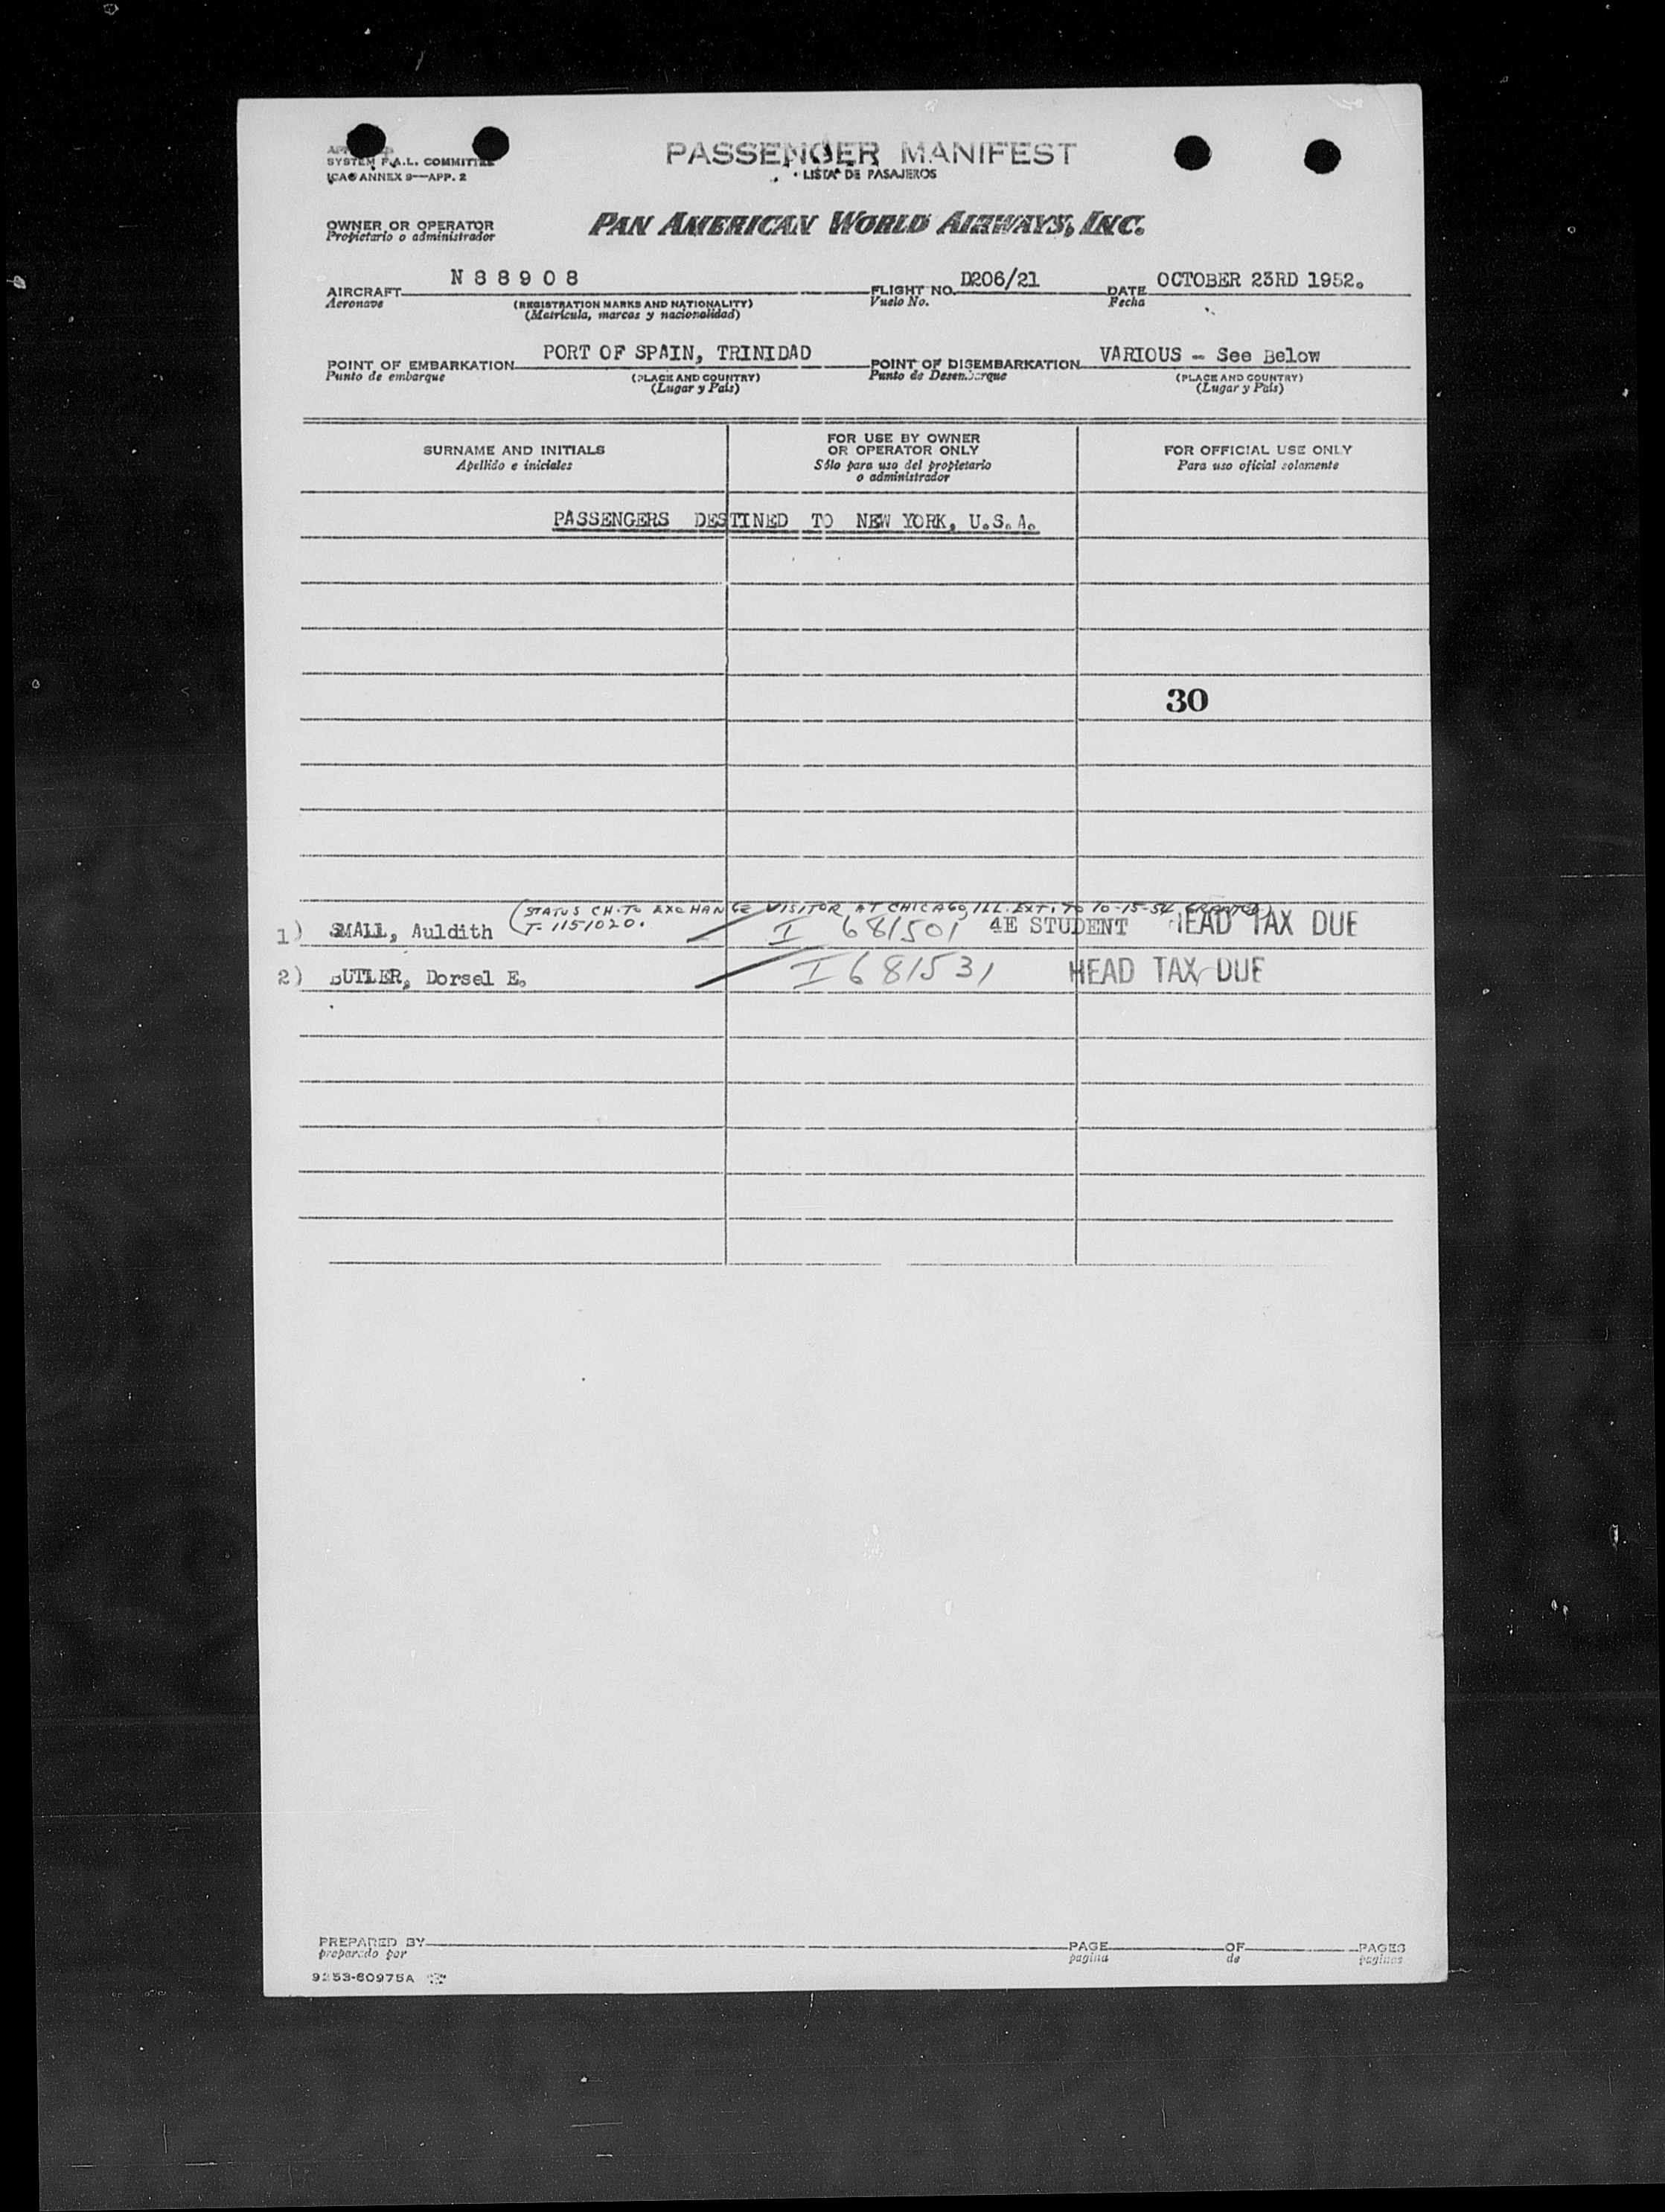 PASSENGER MANIFEST
LISTA DE PASAJEROS
SYSTEM F.A.L. COMMITTEE
ICAO ANNEX 9—APP. 2
OWNER OR OPERATOR
Propietario o administrador
PAN AMERICAN WORLD AIRWAYS, INC.
AIRCRAFT N 8 8 9 0 8 FLIGHT NO. D206/21 DATE OCTOBER 23RD 1952.
Aeronave (REGISTRATION MARKS AND NATIONALITY) Vuelo No. Fecha
(Matrícula, marcas y nacionalidad)
POINT OF EMBARKATION PORT OF SPAIN, TRINIDAD POINT OF DISEMBARKATION VARIOUS - See Below
Punto de embarque (PLACE AND COUNTRY) Punto de Desembarque (PLACE AND COUNTRY)
(Lugar y País) (Lugar y País)
SURNAME AND INITIALS
Apellido e iniciales
FOR USE BY OWNER
OR OPERATOR ONLY
Sólo para uso del propietario
o administrador
FOR OFFICIAL USE ONLY
Para uso oficial solamente
PASSENGERS DESTINED TO NEW YORK, U.S.A.
30
(STATUS CH. TO EXCHANGE VISITOR AT CHICAGO, ILL. EXT. TO 10-15-54 GRANTED)
1) SMALL, Auldith T-1151020. I 681501 4E STUDENT HEAD TAX DUE
2) BUTLER, Dorsel E. I 681531 HEAD TAX DUE
PREPARED BY PAGE OF PAGES
preparado por pagina de paginas
9253-60975A